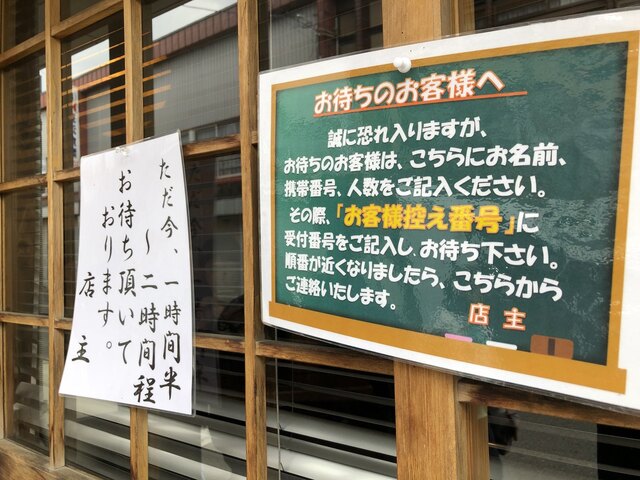 ただ今、一時間半
〜二時間程
お待ち頂いて
おります。
店主
お待ちのお客様へ
誠に恐れ入りますが、
お待ちのお客様は、こちらにお名前、
携帯番号、人数をご記入ください。
その際、「お客様控え番号」に
受付番号をご記入し、お待ち下さい。
順番が近くなりましたら、こちらから
ご連絡いたします。
店主